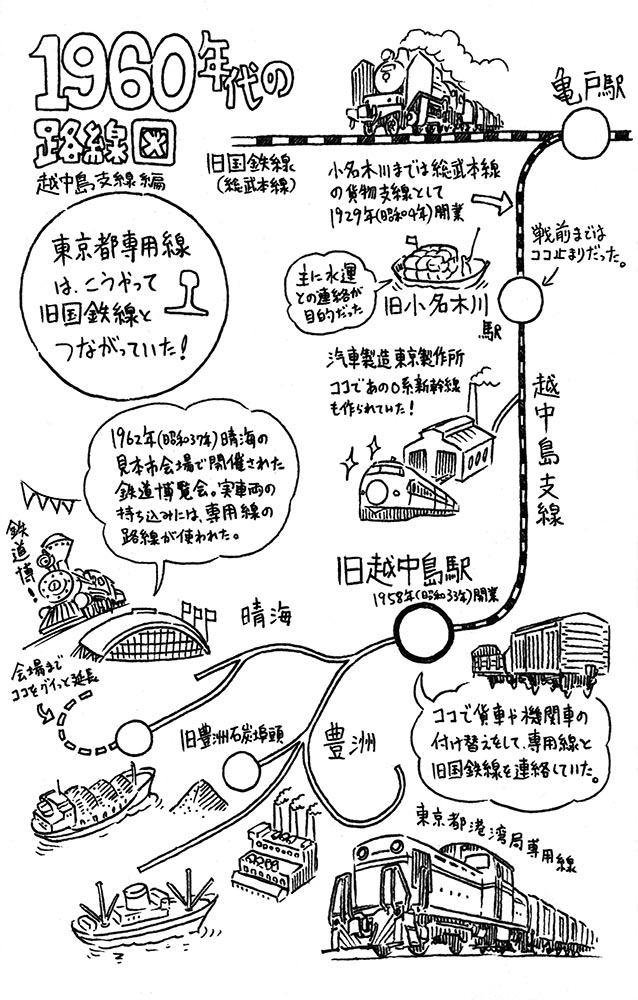 1960年代の
路線図
越中島支線編
東京都専用線
は、こうやって
旧国鉄線と
つながっていた!
旧国鉄線
(総武本線)
亀戸駅
小名木川までは総武本線
の貨物支線として
1929年(昭和4年)開業
戦前までは
ココ止まりだった。
主に水運
との連絡が
目的だった
旧小名木川
駅
汽車製造東京製作所
ココであの0系新幹線
も作られていた!
越中島支線
1962年(昭和37年)晴海の
見本市会場で開催された
鉄道博覧会。実車両の
持ち込みには、専用線の
路線が使われた。
鉄道博!
旧越中島駅
1958年(昭和33年)開業
晴海
会場まで
ココをグイっと延長
旧豊洲石炭埠頭
豊洲
ココで貨車や機関車の
付け替えをして、専用線と
旧国鉄線を連絡していた。
東京都港湾局専用線